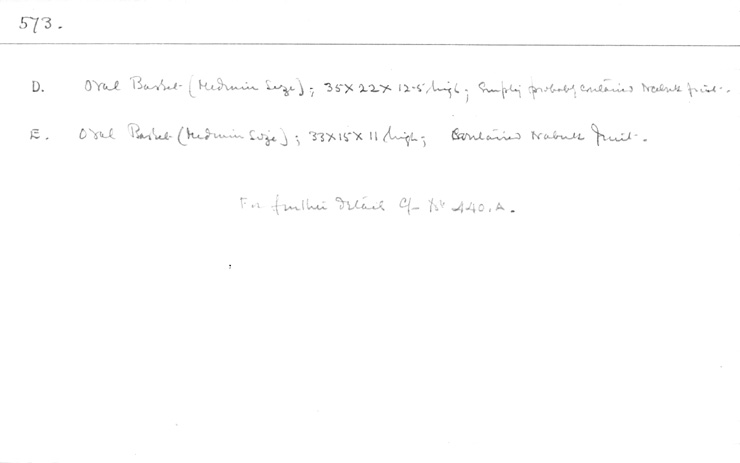 573.
D. Oval Basket (Medium Size); 35 x 22 x 12·5 high; Empty probably contained Nabuk fruit.
E. Oval Basket (Medium Size); 33 x 15 x 11 high; Contained Nabuk fruit.
For further details cf. No 440.A.